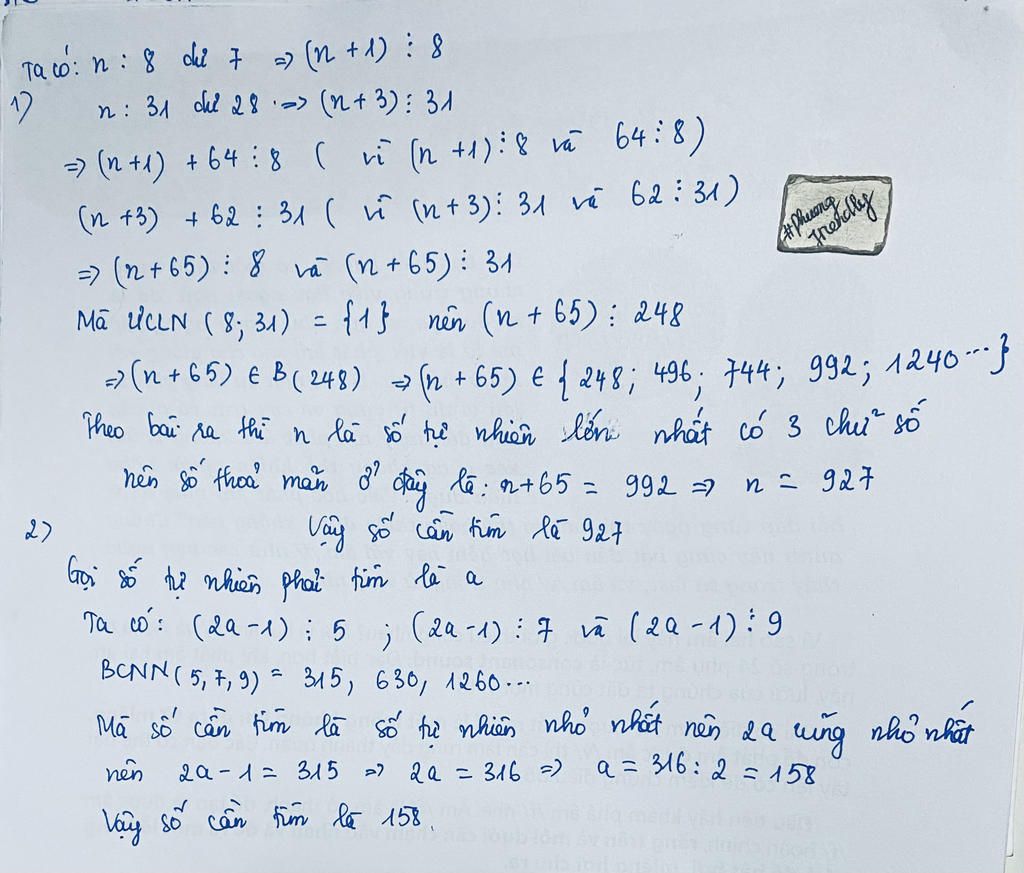 Ta có: n : 8 dư 7 => (n + 1) ⋮ 8
1) n : 31 dư 28 => (n + 3) ⋮ 31
=> (n+1) + 64 ⋮ 8 ( vì (n +1) ⋮ 8 và 64 ⋮ 8)
(n +3) + 62 ⋮ 31 ( vì (n+3) ⋮ 31 và 62 ⋮ 31)
#phuong
friendly
=> (n + 65) ⋮ 8 và (n + 65) ⋮ 31
Mà ƯCLN ( 8; 31) = {1} nên (n + 65) ⋮ 248
=> (n + 65) ∈ B( 248) => (n + 65) ∈ { 248; 496; 744; 992; 1240... }
Theo bài ra thì n là số tự nhiên lớn nhất có 3 chữ số
nên số thoả mãn ở đây là: n+65 = 992 => n = 927
2) Vậy số cần tìm là 927
Gọi số tự nhiên phải tìm là a
Ta có: (2a -1) ⋮ 5 ; (2a -1) ⋮ 7 và (2a -1) ⋮ 9
BCNN( 5, 7, 9) = 315, 630, 1260...
Mà số cần tìm là số tự nhiên nhỏ nhất nên 2a cũng nhỏ nhất
nên 2a - 1 = 315 => 2a = 316 => a = 316 : 2 = 158
Vậy số cần tìm là 158.